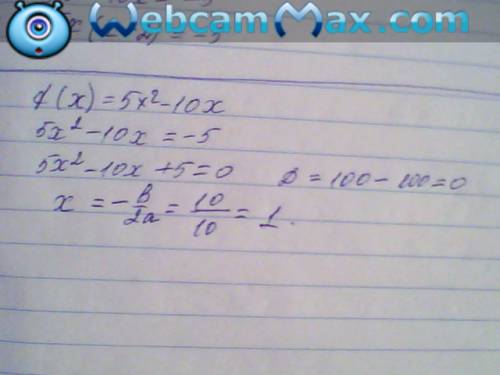 WebcamMax.com
f(x) = 5x² - 10x
5x² - 10x = -5
5x² - 10x + 5 = 0    D = 100 - 100 = 0
x = -b/2a = 10/10 = 1.